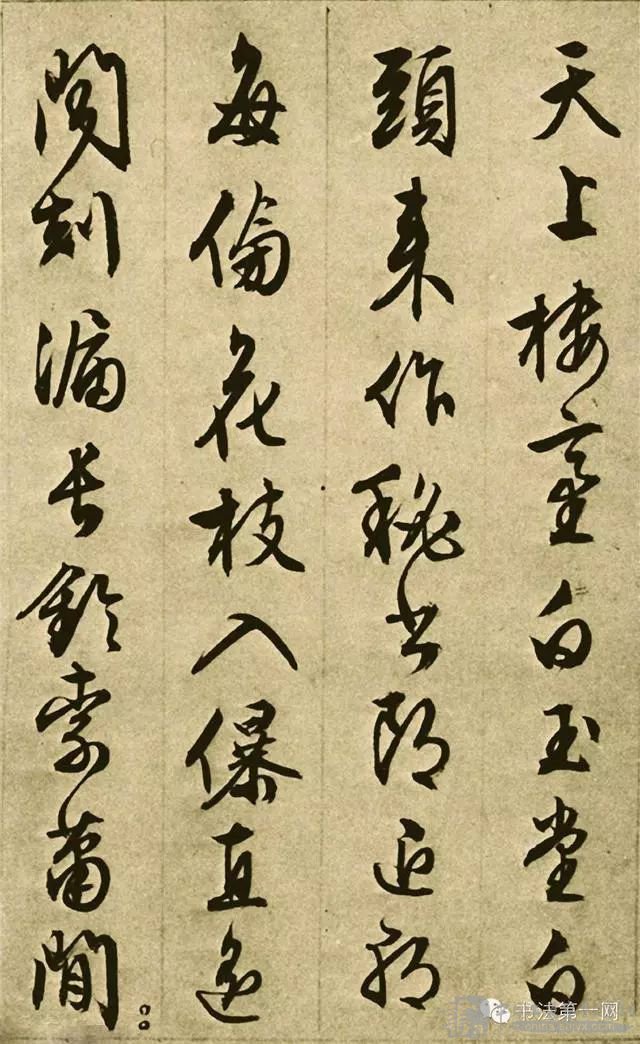 天上樓臺白玉堂白
頭來作秘書郎退朝
每傍花枝入儤直遙
聞刻漏長鈴索蕭閒
书法第一网